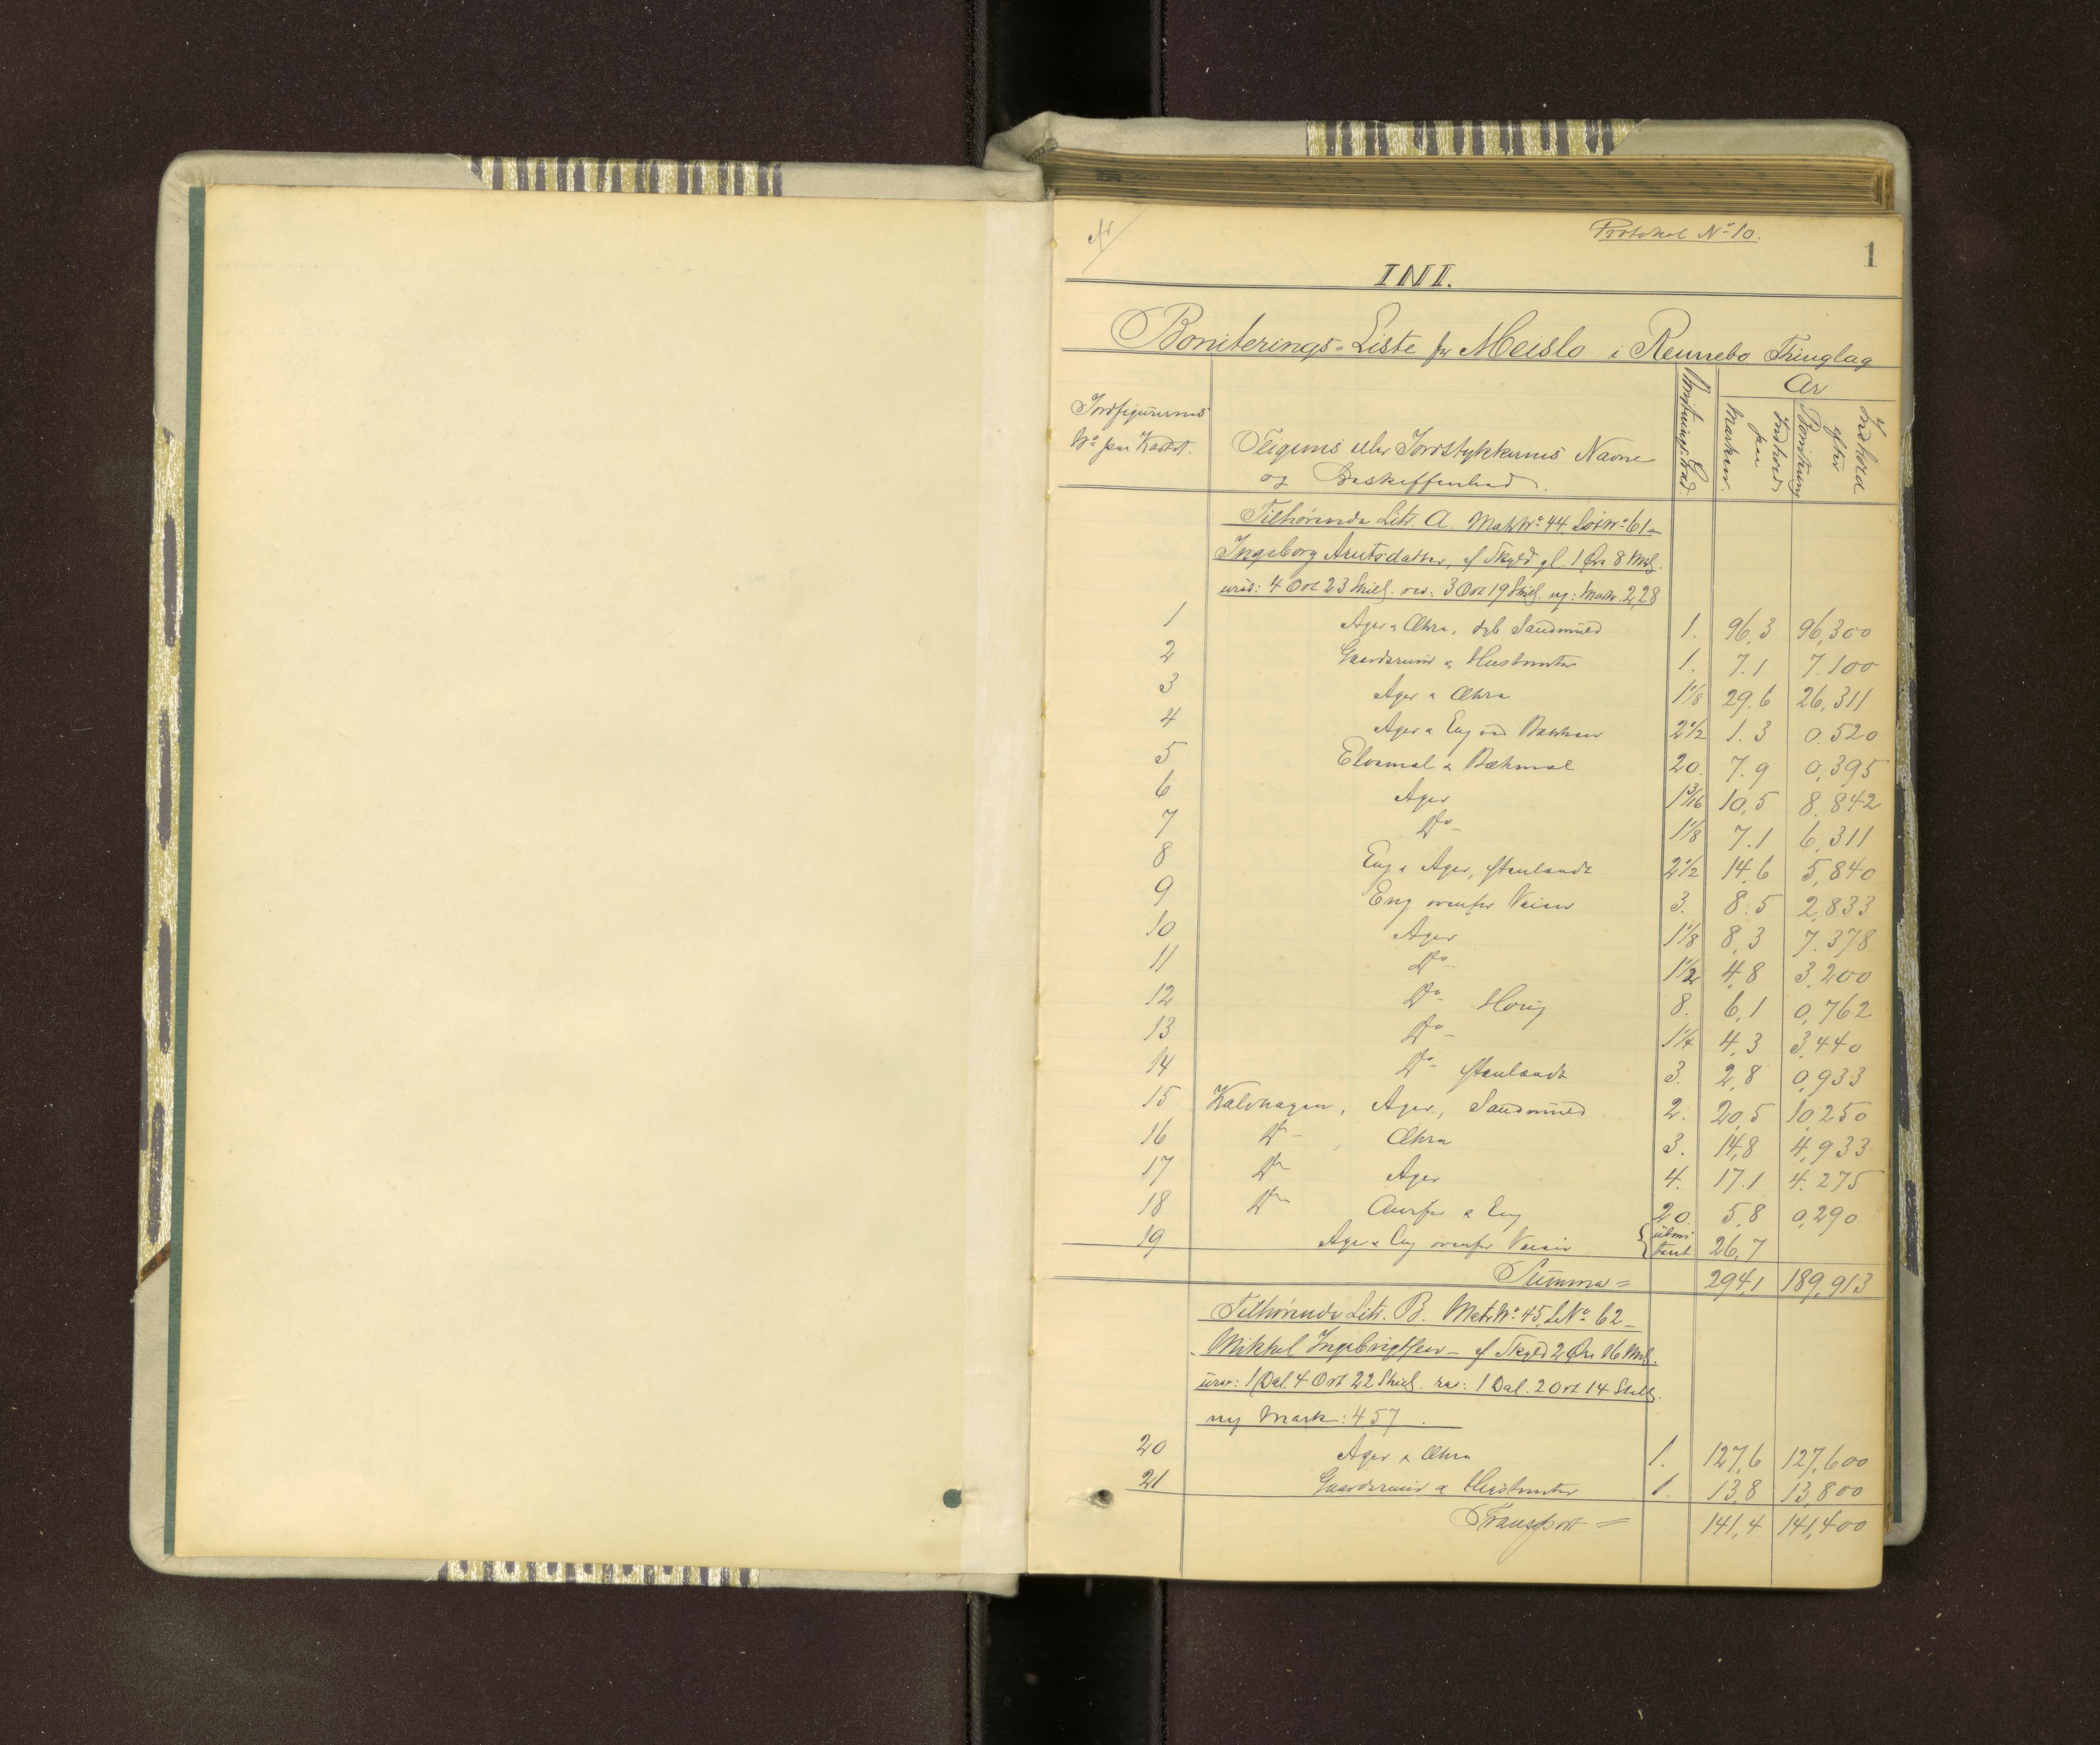 Protokol No 10.
1
INI.
Boniterings-Liste for Meislo i Rennebo Thinglag
Jordfigurernes
No paa Kartet.
Teigens eller Jordstykkernes Navne
og Beskaffenhed.
Bonitrings Grad.
Ar
Indhold paa Marken.
Indhold efter Bonitering
Tilhørende Litr. A. Matr No 44. Løb No 61 -
Ingeborg Arntsdatter, af Skyld gl. 1 Øre 8 Mkl.
urev: 4 Ort 23 Skill. rev: 3 Ort 19 Skill. ny: Mark 2,28
1 Ager & Ækra, dyb Sandmuld 1. 96,3 96,300
2 Gaardsrum & Hustomter 1. 7.1 7.100
3 Ager & Ækra 1 1/8 29.6 26,311
4 Ager & Eng ved Bækken 2 1/2 1.3 0.520
5 Elvemæl & Bækmæl 20. 7.9 0,395
6 Ager 1 3/16 10,5 8.842
7 Do- 1 1/8 7.1 6,311
8 Eng & Ager, stenlændt 2 1/2 14,6 5,840
9 Eng ovenfor Veien 3. 8.5 2,833
10 Ager 1 1/8 8,3 7.378
11 Do- 1 1/2 4,8 3,200
12 Do- 8. 6,1 0,762
13 Do- 1 1/4 4,3 3,440
14 Do- stenlændt 3. 2,8 0,933
15 Kalvhagen, Ager, Sandmuld 2. 20,5 10,250
16 Do- , Ækra 3. 14,8 4,933
17 Do- Ager 4. 17.1 4.275
18 Do- & Eng 20. 5,8 0,290
19 Ager & Eng ovenfor Veien 26,7
Summa = 294,1 189,913
Tilhørende Litr. B. Matr No 45, L No 62 -
Mikkel Ingebrigtsen - af Skyld 2 Øre 16 Mkl.
urev: 1 Dal. 4 Ort 22 Skill. rev: 1 Dal. 2 Ort 14 Skill.
ny Mark: 4 57.
20 Ager & Ækra 1. 127,6 127,600
21 Gaardsrum & Hustomter 1. 13,8 13,800
Transport = 141,4 141,400